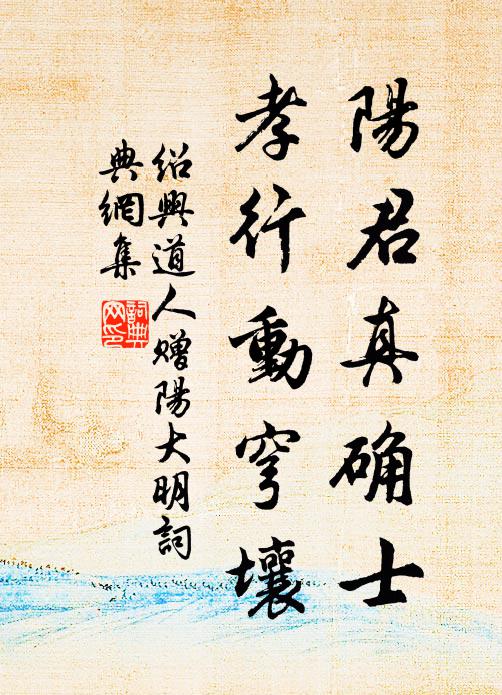 陽君真确士
孝行動穹壤
绍興道人赠陽大明詞
典網集
詞典
网印